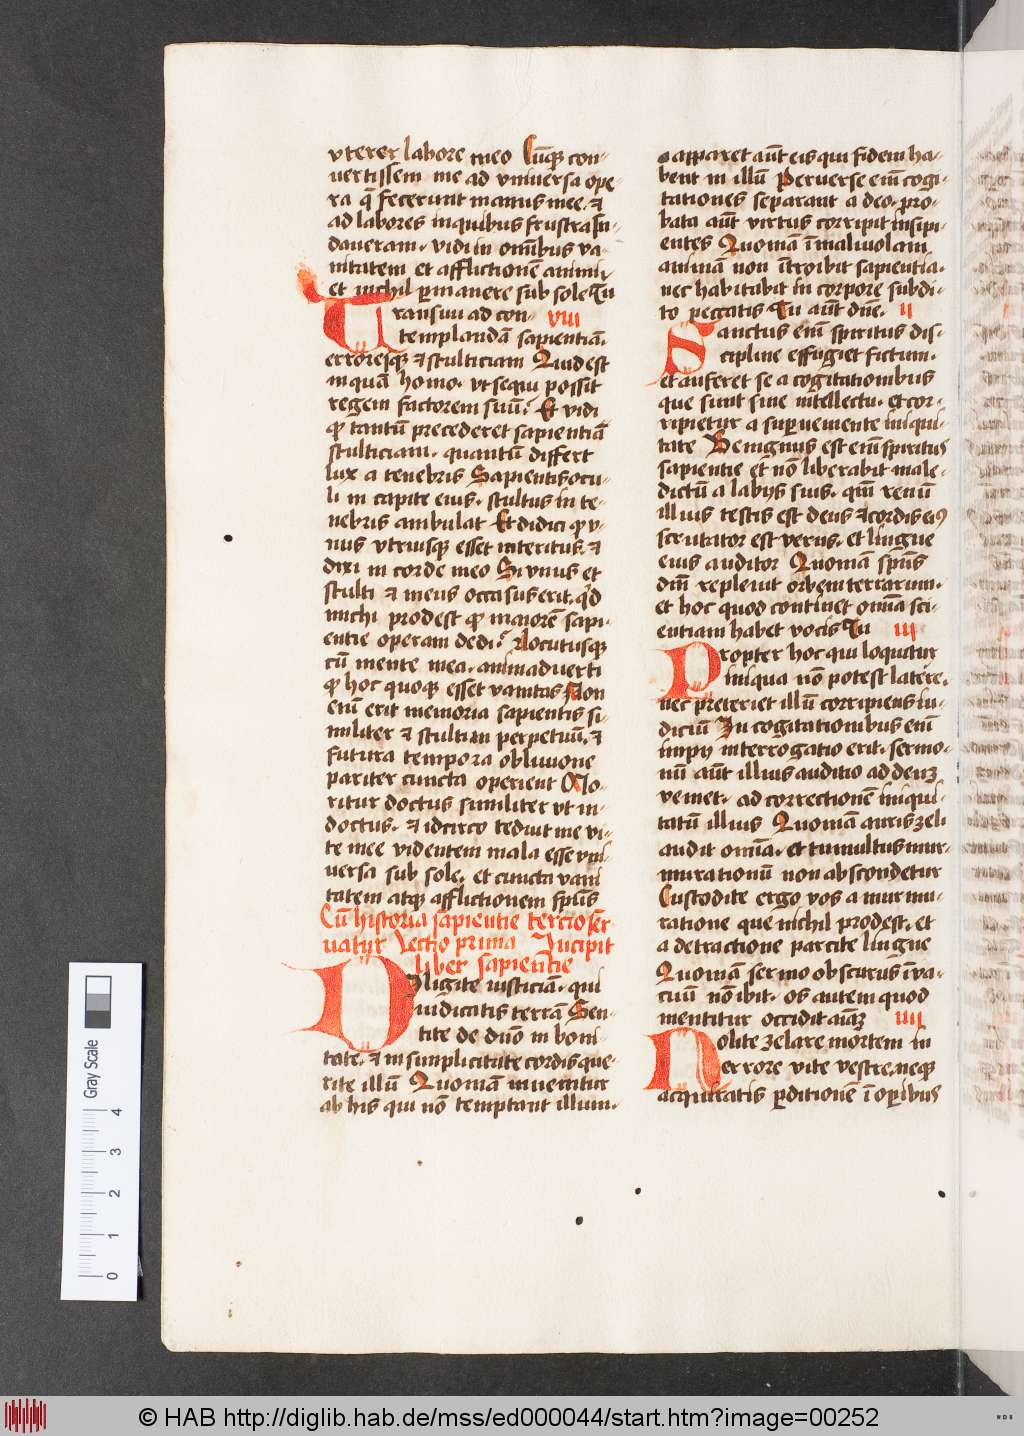 vterer labore meo Cūqꝫ con-
uertissem me ad vniuersa ope-
ra q̄ fecerunt manus mee. ⁊
ad labores inquibus frustra su-
daueram. vidi in om̄ibus va-
nitatem et afflictionē animi,
et nichil ꝑmanere sub sole Tu
Transiui ad con- viii
templandā sapientiā.
erroresqꝫ ⁊ stulticiam Quid est
inquam homo. vt sequi possit
regem factorem suū? Et vidi
ꝙ tantū precederet sapientiā
stulticiam. quantū differt
lux a tenebris Sapientis ocu-
li in capite eius. stultus in te-
nebris ambulat Et didici ꝙ v-
nus vtriusqꝫ esset interitus. ⁊
dixi in corde meo Si vnus et
stulti ⁊ meus occasus erit. qd̄
michi prodest ꝙ maiorē sapi-
entie operam dedi? Locutusqꝫ
cū mente mea. animaduerti
ꝙ hoc quoqꝫ esset vanitas Non
enī erit memoria sapientis si-
militer ⁊ stulti in perpetuū. ⁊
futura tempora obliuione
pariter cuncta operient Mo-
ritur doctus similiter vt in-
doctus. ⁊ idcirco teduit me vi-
te mee videntem mala esse vni-
uersa sub sole. et cuncta vani
tatem atqꝫ afflictionem sp̄us
Cū historia sapientie tercio ser-
uatur Lectio prima Incipit
liber sapientie
Diligite iusticiā. qui
iudicatis terrā Sen-
tite de dn̄o in boni-
tate. ⁊ in simplicitate cordis que-
rite illū Quoniā inuenitur
ab his qui nō temptant illum.
apparet aūt eis qui fidem ha-
bent in illū Peruerse enī cogi-
tationes separant a deo. pro-
bata aūt virtus corripit insipi-
entes Quoniā ī maliuolam
animā non ītroibit sapientia.
nec habitabit in corpore subdi-
to peccatis Tu aūt dn̄e. ii
Sanctus enī spiritus dis-
cipline effugiet fictum.
et auferet se a cogitationibus
que sunt sine intellectu. et cor-
ripietur a suꝑueniente iniqui-
tate Benignus est enī spiritus
sapientie et nō liberabit male-
dictū a labijs suis. qm̄ renū
illius testis est deus ⁊ cordis eiꝰ
scrutator est verus. et lingue
eius auditor Quoniā sp̄us
dn̄i repleuit orbem terrarum.
et hoc quod continet om̄ia sci-
entiam habet vocis Tu iii
Propter hoc qui loquitur
iniqua nō potest latere.
nec preteriet illū corripiens iu-
diciū In cogitationibus enī
impij interrogatio erit. sermo-
nū aūt illius auditio ad deuꝫ
veniet. ad correctionē iniqui-
tatū illius Quoniā auris zeli
audit om̄ia. et tumultus mur-
murationū non abscondetur
Custodite ergo vos a murmu-
ratione que nichil prodest. et
a detractione parcite lingue
Quoniā sermo obscurus ī va-
cuū nō ibit. os autem quod
mentitur occidit aīaꝫ iiii
Nolite zelare mortem in
errore vite vestre. neqꝫ
acquiratis ꝑditionē ī oꝑibus
Gray Scale
0 1 2 3 4
© HAB http://diglib.hab.de/mss/ed000044/start.htm?image=00252